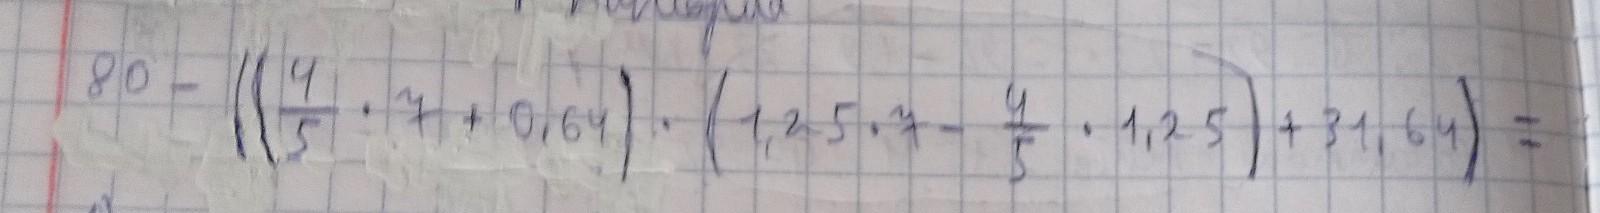 80 - ((4/5 · 7 + 0,64) · (1,25 · 7 - 4/5 · 1,25) + 31,64) =